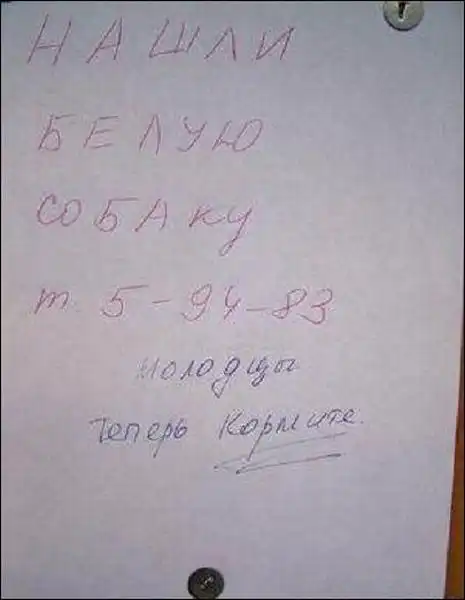 НАШЛИ
БЕЛУЮ
СОБАКУ
т. 5-94-83
молодцы
теперь кормите.